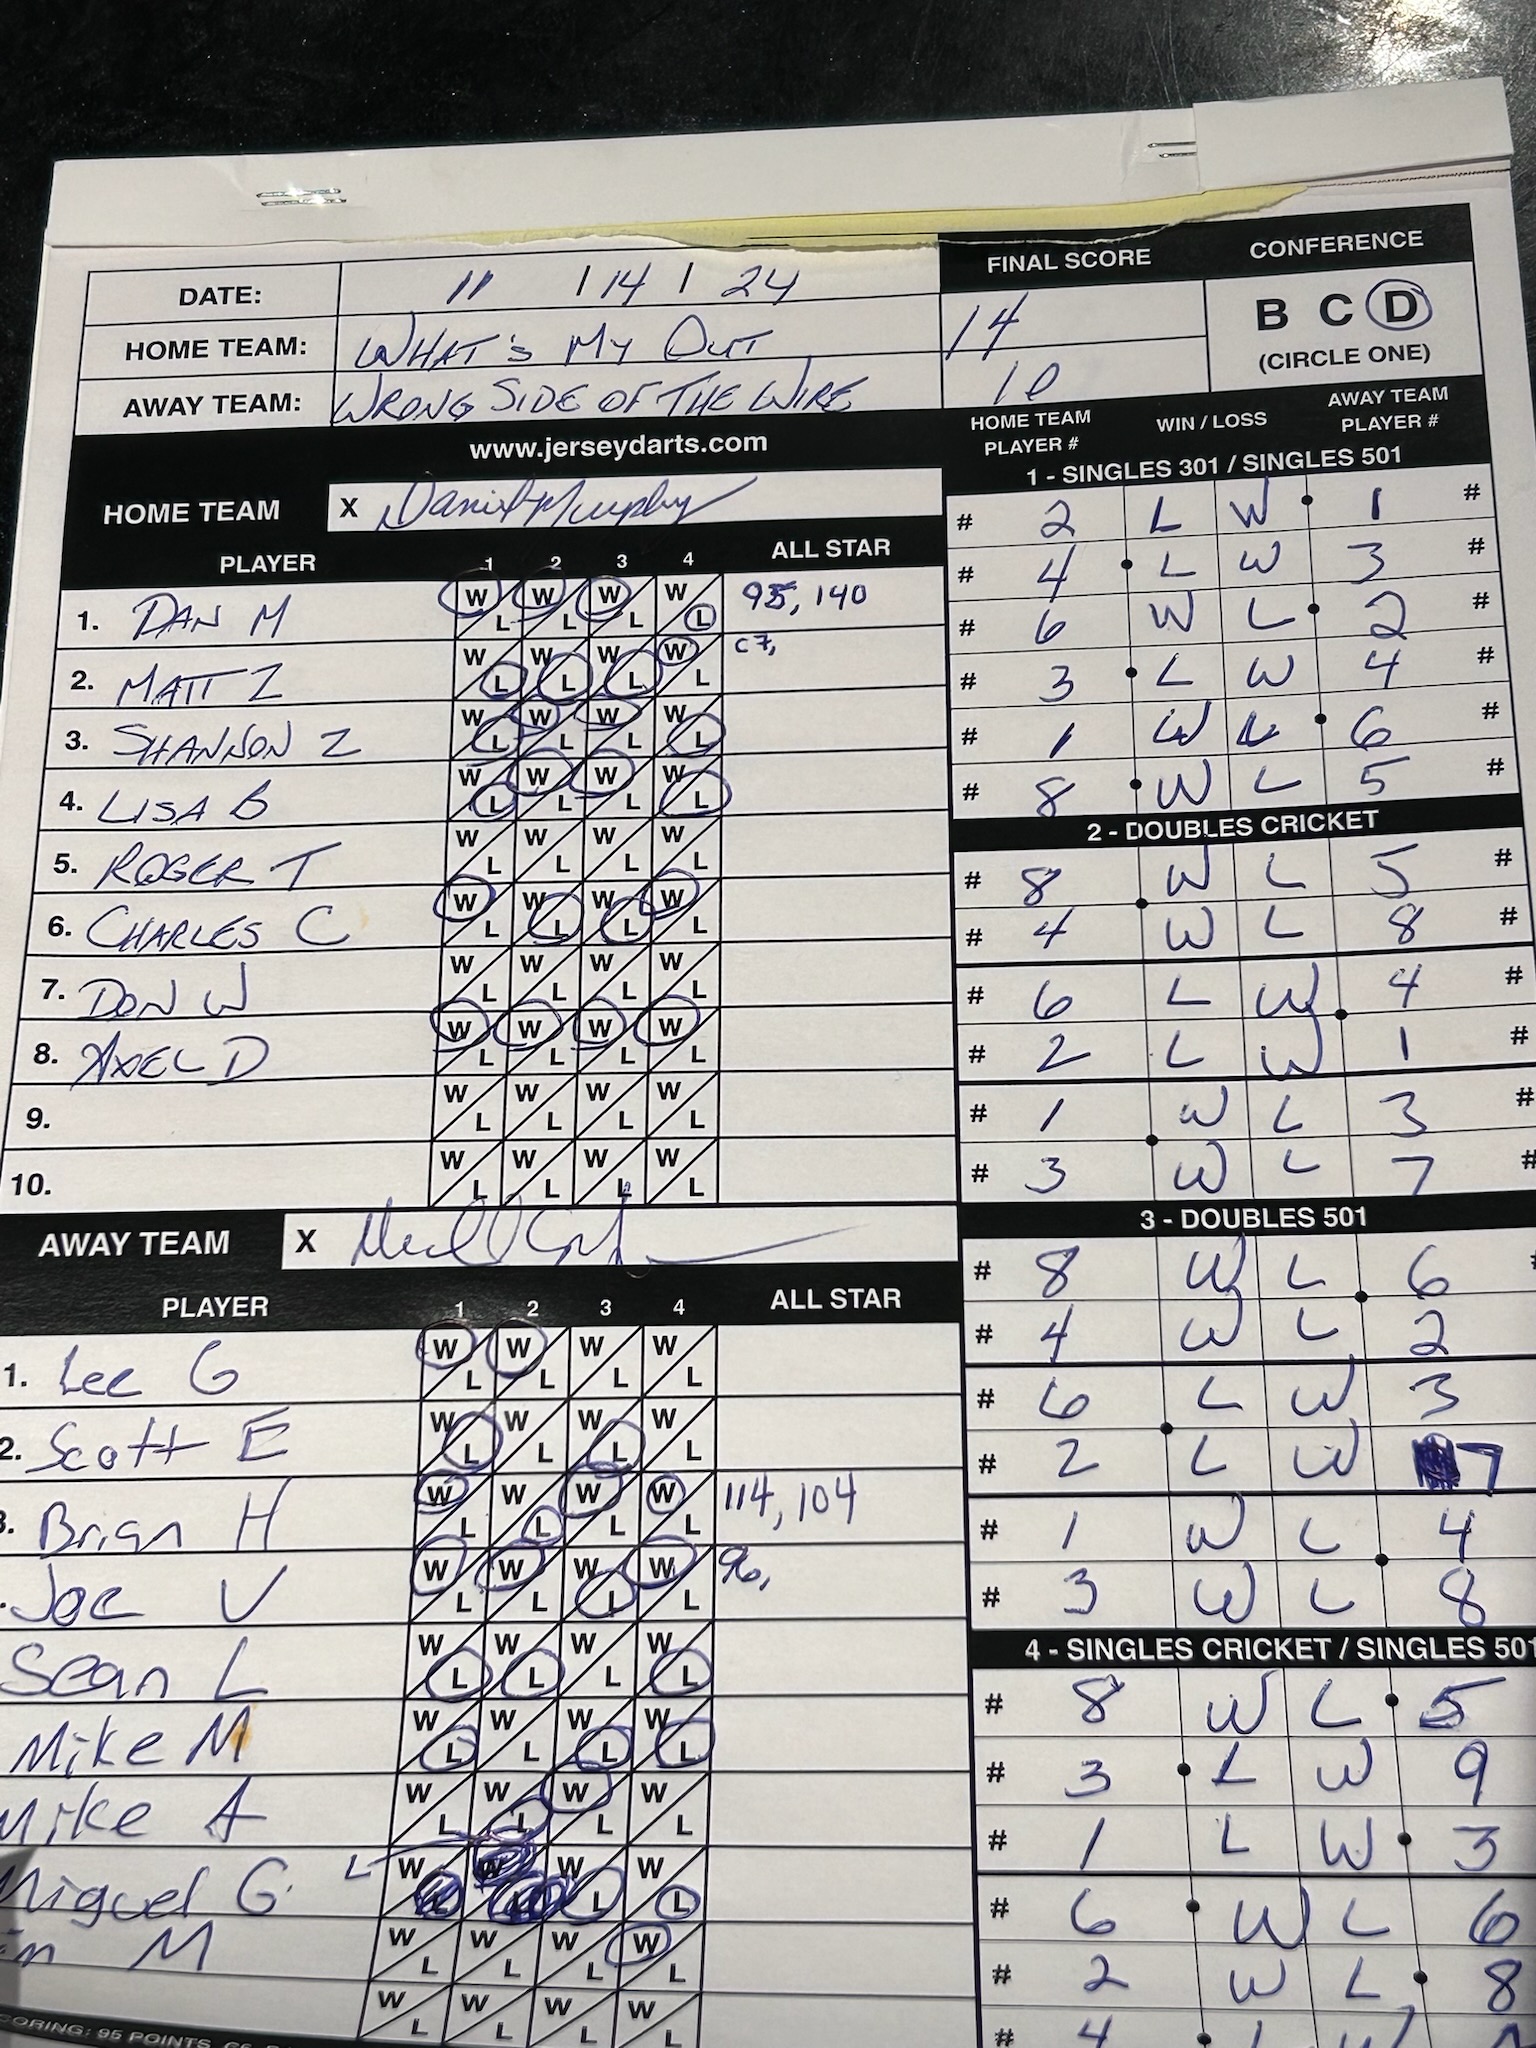 FINAL SCORE CONFERENCE
DATE: 11 / 14 / 24
HOME TEAM: WHAT'S MY OUT 14
B C D
(CIRCLE ONE)
AWAY TEAM: WRONG SIDE OF THE WIRE 10
www.jerseydarts.com
HOME TEAM X Daniel Murphy
PLAYER 1 2 3 4 ALL STAR
1. DAN M W L W L W L W L 95, 140
2. MATT Z W L W L W L W L C7,
3. SHANNON Z W L W L W L W L
4. LISA B W L W L W L W L
5. ROGER T W L W L W L W L
6. CHARLES C W L W L W L W L
7. DON W W L W L W L W L
8. AXEL D W L W L W L W L
9. W L W L W L W L
10. W L W L W L W L
AWAY TEAM X
PLAYER 1 2 3 4 ALL STAR
1. Lee G W L W L W L W L
2. Scott E W L W L W L W L
3. Brian H W L W L W L W L 114, 104
Joe V W L W L W L W L 96,
Sean L W L W L W L W L
Mike M W L W L W L W L
Mike A W L W L W L W L
Miguel G. L W L W L W L
M W L W L W L W L
W L W L W L W L
SCORING: 95 POINTS,
HOME TEAM PLAYER # WIN / LOSS AWAY TEAM PLAYER #
1 - SINGLES 301 / SINGLES 501
# 2 L W 1 #
# 4 L W 3 #
# 6 W L 2 #
# 3 L W 4 #
# 1 W L 6 #
# 8 W L 5 #
2 - DOUBLES CRICKET
# 8 W L 5 #
# 4 W L 8 #
# 6 L W 4 #
# 2 L W 1 #
# 1 W L 3 #
# 3 W L 7 #
3 - DOUBLES 501
# 8 W L 6 #
# 4 W L 2
# 6 L W 3
# 2 L W 7
# 1 W L 4
# 3 W L 8
4 - SINGLES CRICKET / SINGLES 501
# 8 W L 5
# 3 L W 9
# 1 L W 3
# 6 W L 6
# 2 W L 8
# 4 L W